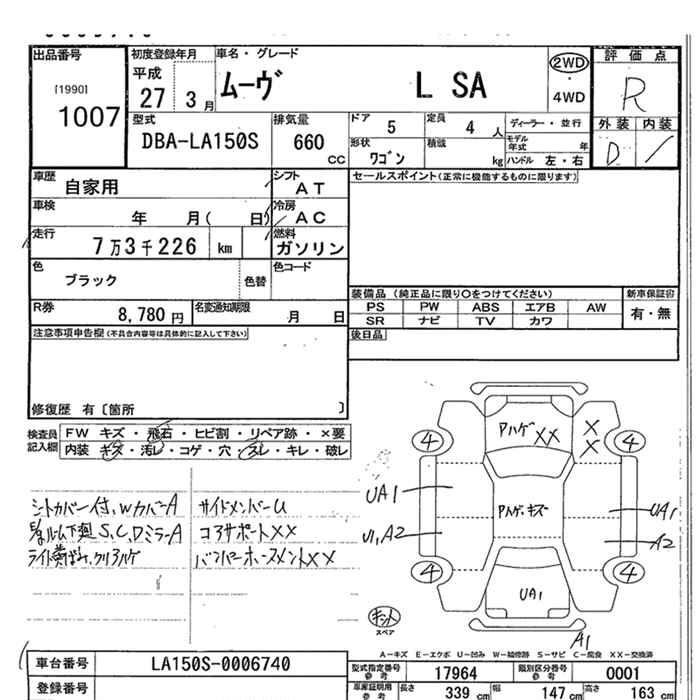 出品番号 初度登録年月 車名・グレード 評価点
[1990] 平成 ムーヴ L SA 2WD R
1007 27 3月 4WD 外装 内装
型式 排気量 ドア 5 定員 4人 ディーラー・並行 D
DBA-LA150S 660 CC 形状 ワゴン 積載 kg モデル年式 年 ハンドル 左・右
車歴 自家用 シフト AT セールスポイント(正常に機能するものに限ります)
車検 年 月( 日) 冷房 AC
走行 7万3千226 km 燃料 ガソリン
色 ブラック 色替 色コード
装備品 (純正品に限り〇をつけてください) 新車保証書
R券 8,780円 名変通知期限 月 日 PS PW ABS エアB AW 有・無
SR ナビ TV カワ
注意事項申告欄(不具合内容等は具体的に記入して下さい) 後日品
修復歴 有〔箇所 〕
検査員記入欄 FW キズ・飛石・ヒビ割・リペア跡・×要
内装 キズ・汚レ・コゲ・穴・スレ・キレ・破レ
シートカバー付、Wカバー A サイドメンバーU
下廻S、C、DミラーA コアサポートXX
XX
Aハゲ XX X X
4 4
UA1 Aハゲ、キズ UA1
U1,A2 A2
4 4
UA1
キント
スペア A1
A-キズ E-エクボ U-凹み W-補修跡 S-サビ C-腐食 XX-交換済
車台番号 LA150S-0006740 型式指定番号 参考 17964 類別区分番号 参考 0001
登録番号 車庫証明用 参考 長さ 339 cm 幅 147 cm 高さ 163 cm